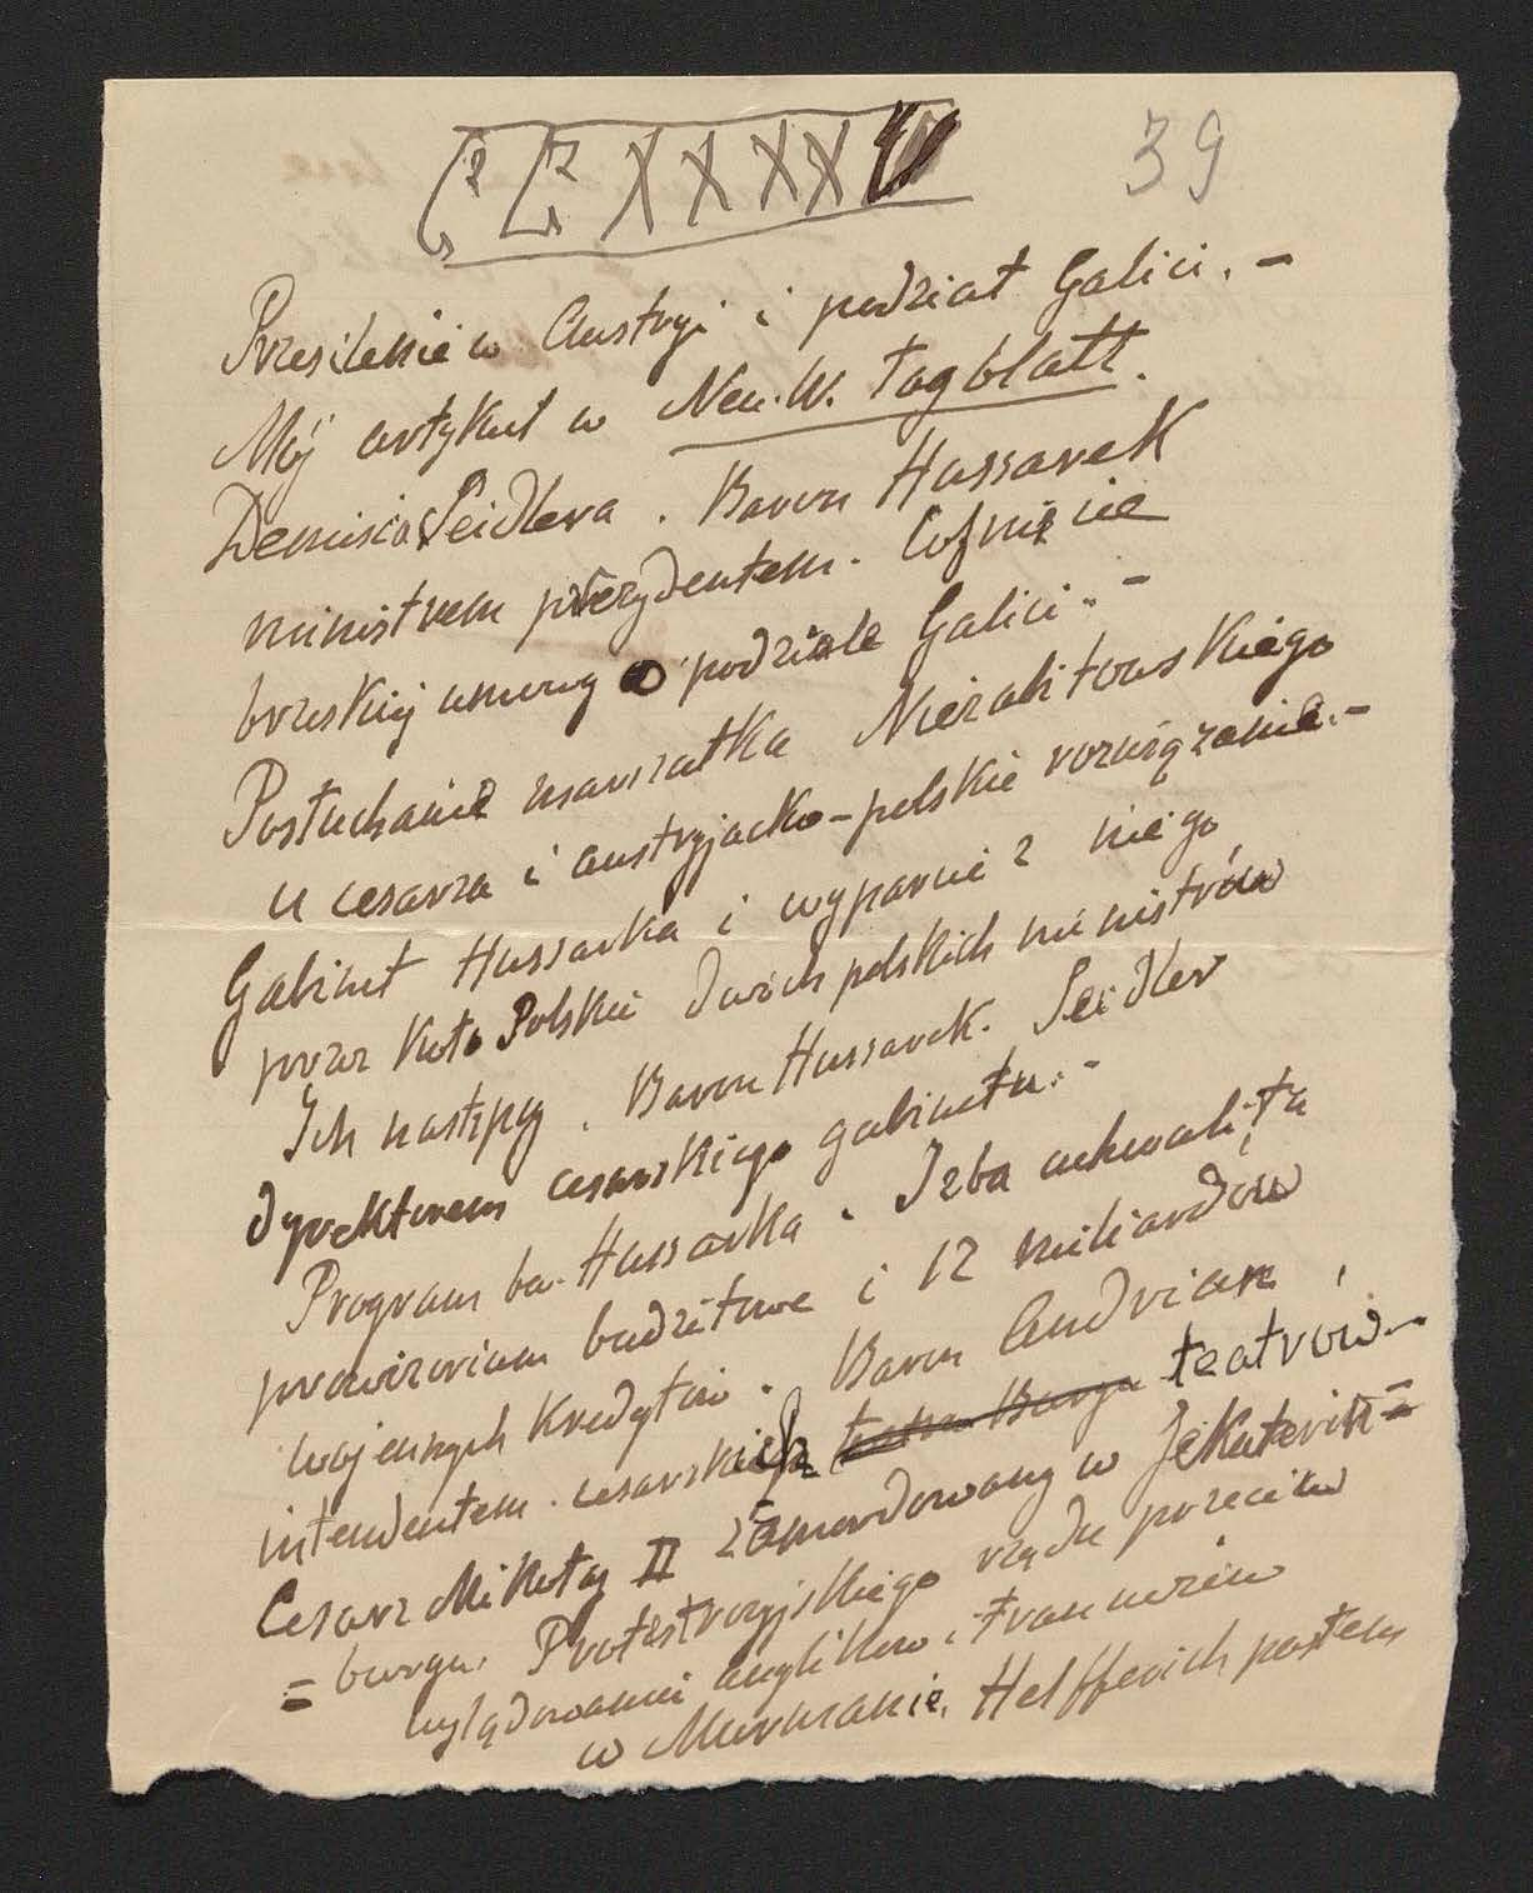 39
Przesilenie w Austryi i podział Galici. –
Mój artykuł w Neu. W. Tagblatt.
Demisia Seidlera. Baron Hussarek
ministrem prezydentem. Cofnięcie
brzeskiej umowy o podziale Galici. –
Posłuchanie marszałka Niezabitowskiego
u cesarza i austryjacko-polskie rozwiązanie. –
Gabinet Hussarka i wyparcie z niego
przez Koło Polskie dwóch polskich ministrów
Ich następcy. Baron Hussarek. Seidler
dyrektorem cesarskiego gabinetu. –
Program ba. Hussarka. Izba uchwaliła
prowizorium budżetowe i 12 miliardów
wojennych kredytów. Baron Andrian
intendentem cesarskich teatrów. –
Cesarz Mikołaj II zamordowany w Jekaterin=
=burgu. Protest rządu przeciw
wylądowaniu anglików i francuzów
w Murmanie. Helfferich posłem